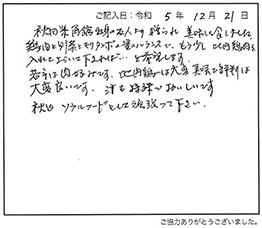 ご記入日：令和 5年 12月 21日
秋田米角館出身の友人より贈られ 美味しく食しました
鶏肉と野菜とキリタンポの量のバランスで、もう少し比内鶏肉を
入れて下されば… と希望します。
若者は肉好みです。比内鶏は大変美味で評判は
大変良いです。汁も特殊でおいしいです
秋田 ソウルフードとして頑張って下さい。
ご協力ありがとうございました。